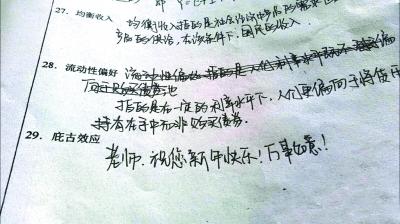 27. 均衡收入 均衡收入指的是社会经济中与总需求
产后的供给，在该条件下，国民的收入。
28. 流动性偏好
指的是在一定的利率水平下，人们更偏向于将货币
持有在手中而非购买债券。
29. 庇古效应
老师，祝您新年快乐！万事如意！